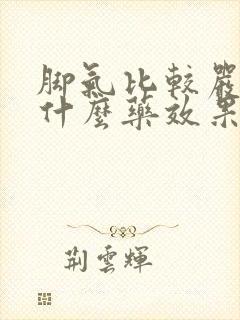 脚氣比較嚴
什麼藥效果
荆雲輝